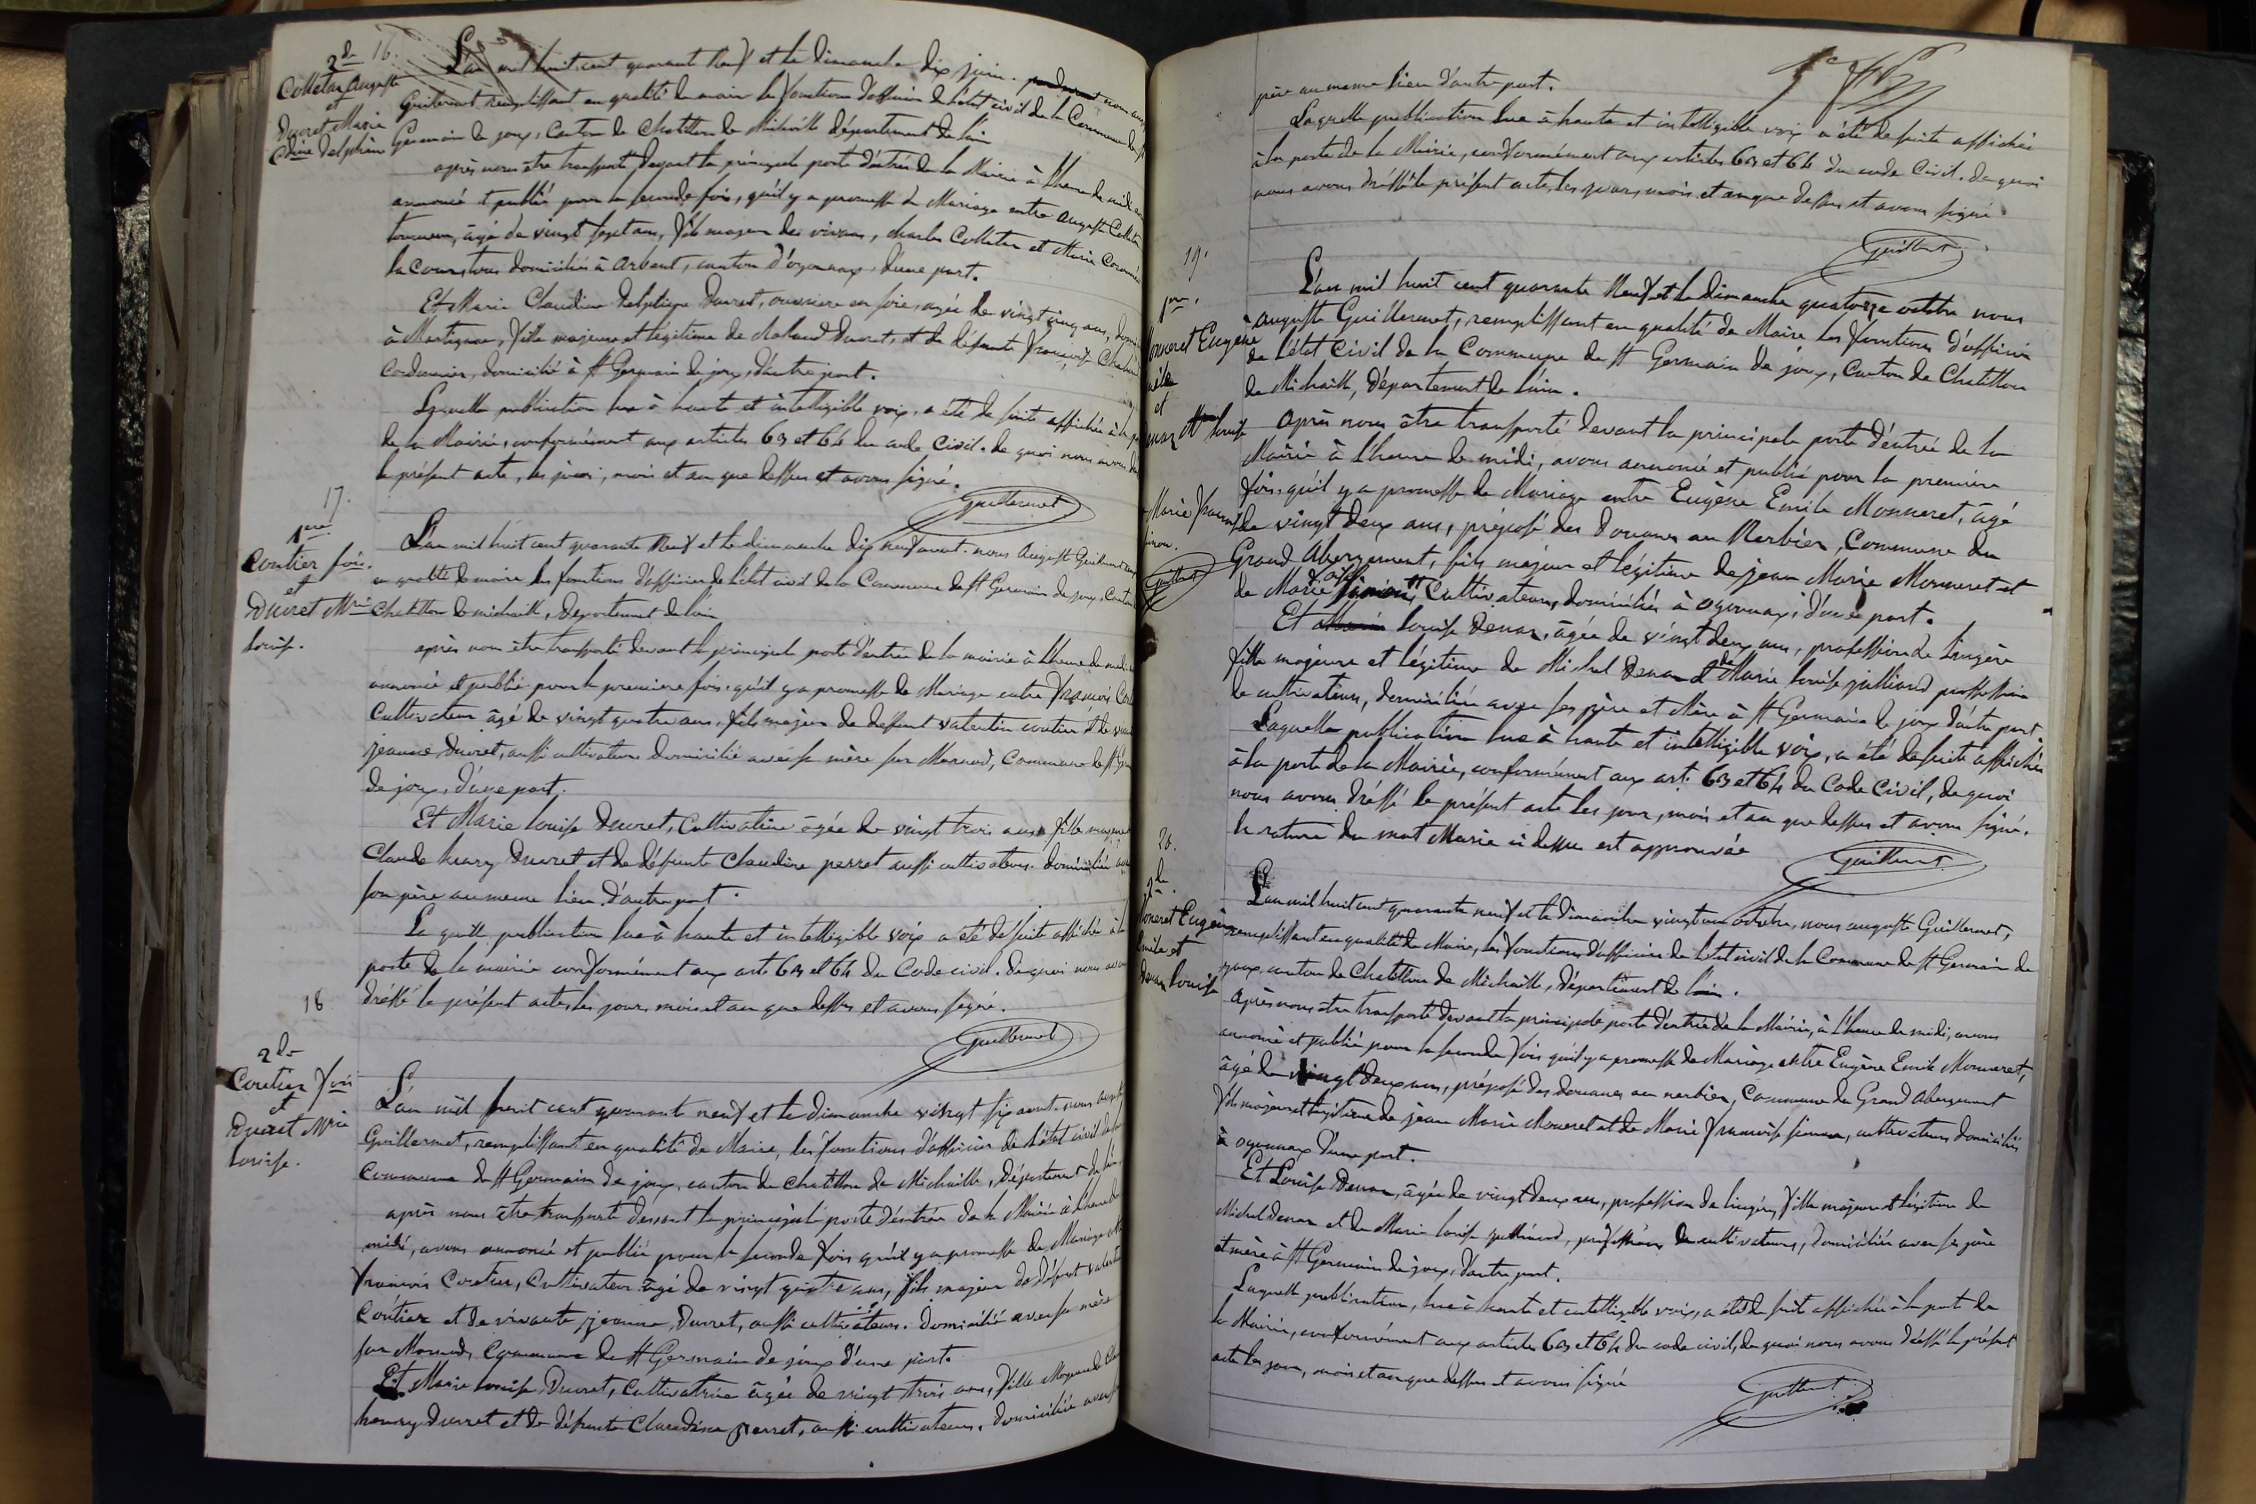 16.
2de
Colletaz Auguste
et
Ducret Marie
Cdine Delphine
L'an mil huit cent quarante Neuf et le dimanche dix juin. nous
Guillermet remplissant en qualité de maire les fonctions d'officier de l'état civil de la Commune de St
Germain de joux, Canton de Chatillon de Michaille département de l'ain
après nous être transporté devant la principale porte d'entrée de la Mairie à l'heure de midi
annoncé et publié pour la seconde fois, qu'il y a promesse de Mariage entre Auguste
tourneur, âgé de vingt sept ans, fils majeur des vivans, charles Colletaz et Marie
domiciliés à Arbent, canton d'oyonnax, d'une part.
Et Marie Claudine Delphine Ducret, ouvriere en soie, agée de vingt cinq ans,
à Martignat, fille majeure et légitime de Ducret, et de défunte françoise
Cordonnier, domicilié à St Germain de joux, d'autre part.
Laquelle publication lue à haute et intelligible voix, a été de suite affichée à la
de la Mairie, conformément aux articles 63 et 64 du code Civil. de quoi nous avons
le présent acte, les jour, mois et an que dessus et avons signé.
Guillermet
17.
1ere
Coutier fois.
et
Ducret Mrie
Louise.
L'an mil huit cent quarante Neuf et le dimanche dix neuf aout. nous Auguste Guillermet
en qualité de maire les fonctions d'officier de l'état civil de la Commune de St Germain de joux, Canton
Chatillon de michaille, Département de l'ain
après nous être transporté devant la principale porte d'entrée de la mairie à l'heure de midi
annoncé et publié pour la premiere fois, qu'il y a promesse de Mariage entre françois
Cultivateur âgé de vingt quatre ans, fils majeur de deffunt valentin coutier et de
jeanne Ducret, aussi cultivateurs domicilié avec sa mère sur Marnod, Commune de St
de joux, d'une part.
Et Marie Louise Ducret, Cultivatrice âgée de vingt trois ans, fille majeure
Claude henry Ducret et de défunte Claudine perret aussi cultivateurs. domiciliée
son père au meme lieu d'autre part.
La quelle publication lue à haute et intelligible voix a été de suite affichée à la
porte de la mairie conformément aux arts 63 et 64 du Code civil. de quoi nous avons
dréssé le présent acte, les jour, mois et an que dessus et avons signé.
Guillermet
18
2de
Coutier fois
et
Ducret Mrie
Louise.
L'an mil huit cent quarante neuf et le dimanche vingt six aout. nous
Guillermet, remplissant en qualité de Maire, les fonctions d'officier de l'état civil de la
Commune de St Germain de joux, canton de Chatillon de Michaille, Département de l'ain.
après nous être transporté devant la principale porte d'entrée de la Mairie à l'heure de
midi, avons annoncé et publié pour la seconde fois qu'il y a promesse de Mariage
françois Coutier, Cultivateur âgé de vingt quatre ans, fils majeur de défunt valentin
Coutier et de vivante jeanne Ducret, aussi cultivateurs. domicilié avec sa mère
sur Marnod, Commune de St Germain de joux d'une part.
Et Marie Louise Ducret, Cultivatrice âgée de vingt trois ans, fille Majeure de
henry Ducret et de défunte Claudine perret, aussi cultivateurs. domiciliée avec
père au meme lieu d'autre part.
Laquelle publication lue à haute et intelligible voix a été de suite affichée
à la porte de la Mairie, conformément aux articles 63 et 64 du code Civil. de quoi
nous avons dréssé le présent acte, les jour, mois et an que dessus et avons signé
Guillermet
19.
1ere.
Monneret Eugène
émile
et
Louise
L'an mil huit cent quarante Neuf et le dimanche quatorze octobre nous
auguste Guillermet, remplissant en qualité de Maire les fonctions d'officier
de l'état Civil de la Commune de St Germain de joux, Canton de Chatillon
de Michaille, Département de l'ain.
Après nous être transporté devant la principale porte d'entrée de la
Mairie à l'heure de midi, avons annoncé et publié pour la premiere
fois, qu'il y a promesse de Mariage entre Eugène Emile Monneret, âgé
Marie
Guillermet
de vingt deux ans, préposé des Douanes au Nerbier, Commune du
Grand Abergement, fils majeur et légitime de jean Marie Monneret et
de Marie Cultivateurs, domiciliés à oyonnax, d'une part.
Et Marie Louise Denar, âgée de vingt deux ans, profession de Lingère
fille majeure et légitime de Michel Denar et de Marie Louise julliard profession
de cultivateurs, domiciliée avec ses père et Mère à St Germain de joux d'autre part.
Laquelle publication lue à haute et intelligible voix, a été de suite affichée
à la porte de la Mairie, conformément aux art. 63 et 64 du Code Civil, de quoi
nous avons dréssé le présent acte les jour, mois et an que dessus et avons signé.
la rature du mot Marie ci dessus est approuvée
Guillermet
20.
2de.
Monneret Eugène
Emile et
Denar Louise
L'an mil huit cent quarante neuf et le dimanche vingt un octobre, nous auguste Guillermet,
remplissant en qualité de Maire, les fonctions d'officier de l'état civil de la Commune de St Germain de
joux, canton de Chatillon de Michaille, département de l'ain.
Après nous être transporté devant la principale porte d'entrée de la Mairie, à l'heure de midi, avons
annoncé et publié pour la seconde fois qu'il y a promesse de Mariage entre Eugène Emile Monneret,
âgé de vingt deux ans, préposé des douanes au nerbier, Commune du Grand Abergement
fils majeur et légitime de jean Marie Moneret et de Marie françoise cultivateurs domiciliés
à oyonnax d'une part.
Et Louise Denar, âgée de vingt deux ans, profession de lingère, fille majeure et légitime de
Michel denar et de Marie Louise julliard, profession de cultivateurs, domiciliée avec ses père
et mère à St Germain de joux, d'autre part.
Laquelle publication, lue à haute et intelligible voix, a été de suite affichée à la porte de
la Mairie, conformément aux articles 63 et 64 du code civil, de quoi nous avons dréssé le présent
acte les jour, mois et an que dessus et avons signé
Guillermet